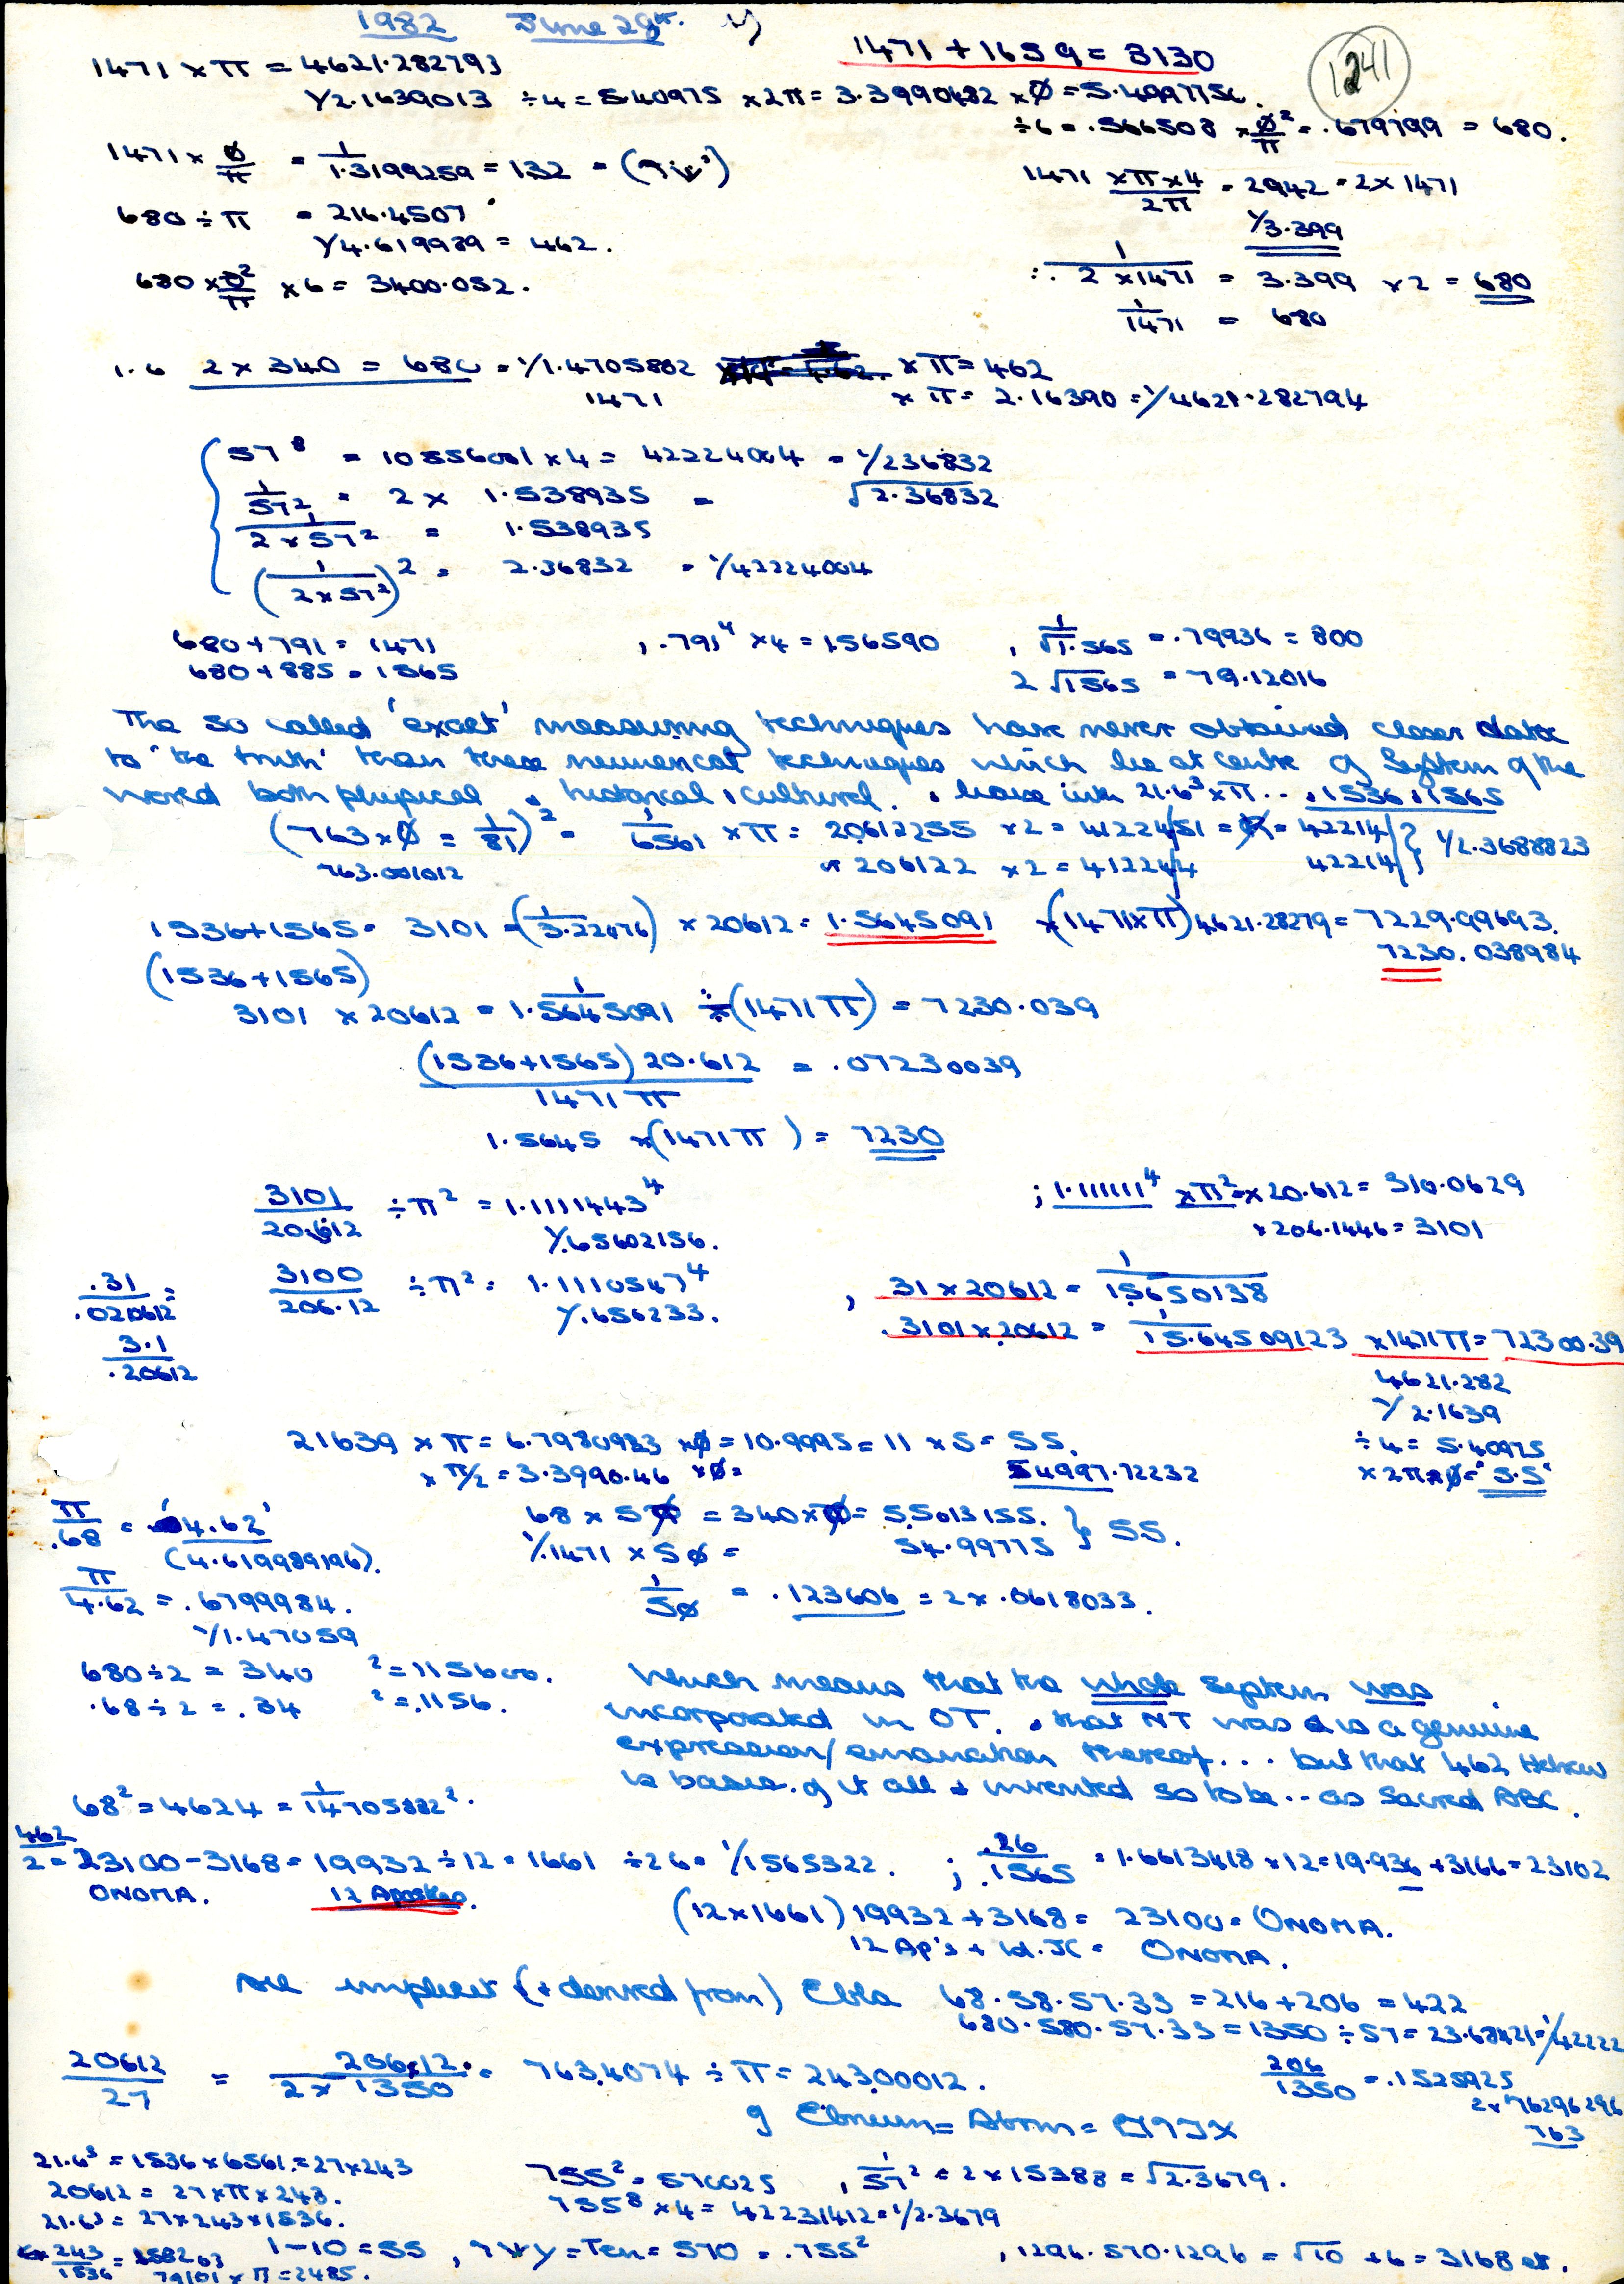 1982 June 29th.
1471 + 1659 = 3130
1241
1471 × π = 4621.282793
1/2.1639013 ÷ 4 = 5.40975 × 2π = 3.3990482 × Ø = 5.4997756.
÷ 6 = .566508 × Ø²/π = .679799 = 680.
1471 × Ø/π = 1/1.3199259 = 132 =
1471 × π × 4 / 2π = 2942 = 2 × 1471
680 ÷ π = 216.4507
1/3.399
1/4.619989 = 462.
∴ 1/(2 × 1471) = 3.399 × 2 = 680
680 × Ø²/π × 6 = 3400.052.
1/1471 = 680
1.6 2 × 340 = 680 = 1/1.4705882 × π = 462
1471 × π = 2.16390 = 1/4621.282794
57⁸ = 10556001 × 4 = 42224004 = 1/236832
1/57² = 2 × 1.538935 = √2.36832
1/(2 × 57²) = 1.538935
(1/(2 × 57²))² = 2.36832 = 1/42224004
680 + 791 = 1471 , .791⁴ × 4 = 156590 , 1/√1.565 = .79936 = 800
680 + 885 = 1565 2√1565 = 79.12016
The so called 'exact' measuring techniques have never obtained closer data
to 'the truth' than these numerical techniques which lie at centre of System of the
world both physical, historical, cultural. , leave with 21.6³ × π .. , 1536, 1565
(763 × Ø = 1/81)² = 1/6561 × π = 20612255 × 2 = 4122451 = = 42214 } 1/2.3688823
763.001012 or 206122 × 2 = 412244 42214
1536 + 1565 = 3101 = (1/3.22476) × 20612 = 1.5645091 × (1471 × π) 4621.28279 = 7229.99693.
7230.038984
(1536 + 1565)
3101 × 20612 = 1/1.5645091 ÷ (1471π) = 7230.039
(1536 + 1565) 20.612 / 1471π = .07230039
1.5645 × (1471π) = 7230
3101/20.612 ÷ π² = 1.1111443⁴ ; 1.111111⁴ × π² × 20.612 = 310.0629
1/.65602156. × 206.1446 = 3101
.31/.020612 = 3100/206.12 ÷ π² = 1.1110547⁴ , 31 × 20612 = 1/15650138
1/.656233.
3.1/.20612 .3101 × 20612 = 1/15.64509123 × 1471π = 72300.39
4621.282
1/2.1639
21639 × π = 6.7980983 × Ø = 10.9995 = 11 × 5 = 55. ÷ 4 = 5.40975
× π/2 = 3.3990.46 × Ø = 54997.72232 × 2π × Ø = '5.5'
π/.68 = '4.62' 68 × 5Ø = 340 × Ø = 55013155. } 55.
(4.619989196). 1/.1471 × 5Ø = 54.99775
π/4.62 = .6799984. 1/5Ø = .123606 = 2 × .0618033.
1/1.47059
680 ÷ 2 = 340 ² = 115600. Which means that the whole System was
.68 ÷ 2 = .34 ² = .1156. incorporated in OT. , that NT was & is a genuine
expression/emanation thereof... but that 462 Hebrew
is basis of it all & invented so to be .. as Sacred ABC.
68² = 4624 = 1/14705882².
462/2 = 23100 - 3168 = 19932 ÷ 12 = 1661 ÷ 26 = 1/1565322. ; .26/.1565 = 1.6613418 × 12 = 19.936 + 3166 = 23102
ONOMA. 12 Apostles.
(12 × 1661) 19932 + 3168 = 23100 = ONOMA.
12 Ap's + Ld. JC = ONOMA.
All implicit (& derived from) Ebla 68.58.57.33 = 216 + 206 = 422
680.580.57.33 = 1350 ÷ 57 = 23.68421 = 1/42222
20612/27 = 206.12/(2 × 1350) = 763.4074 ÷ π = 243.00012. 206/1350 = .1525925
2 × 76296296
763
of Ebrium =
21.6³ = 1536 × 6561 = 27 × 243 755² = 570025 , 1/57² = 2 × 15388 = √2.3679.
20612 = 27 × π × 243. 755⁸ × 4 = 42231412 = 1/2.3679
21.6³ = 27 × 243 × 1536.
243/1536 = 158203 1 - 10 = 55 , = Ten = 570 = .755² , 1296.570.1296 = √10 + 6 = 3168 etc.
79101 × π = 2485.